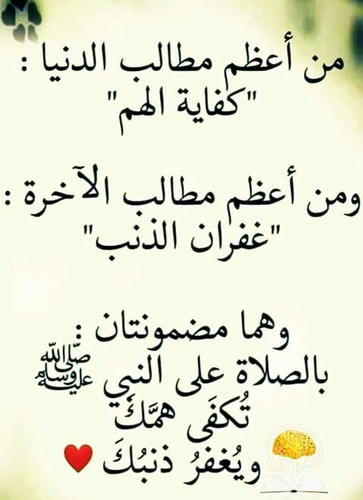 من أعظم مطالب الدنيا :
"كفاية الهم"
ومن أعظم مطالب الآخرة :
"غفران الذنب"
وهما مضمونتان :
بالصلاة على النبي ﷺ
تُكفَى همَّكَ
ويُغفرُ ذنبُكَ ❤